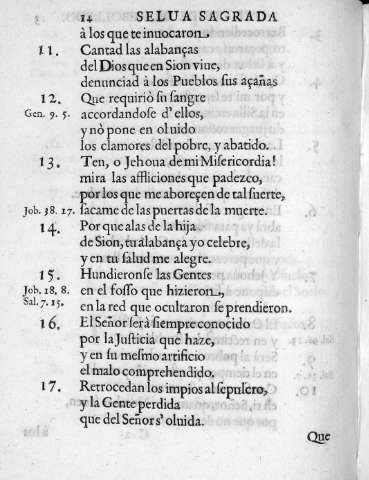 14 SELUA SAGRADA
à los que te inuocaron.
11. Cantad las alabanças
del Dios que en Sion viue,
denunciad à los Pueblos ſus açañas
12. Que requiriò ſu ſangre
Gen. 9. 5. accordandoſe d'ellos,
y nò pone en oluido
los clamores del pobre, y abatido.
13. Ten, o Jehoua de mi Miſericordia!
mira las afflicciones que padezco,
por los que me aboreçen de tal ſuerte,
Job. 38. 17. ſacame de las puertas de la muerte.
14. Por que alas de la hija
de Sion, tu alabança yo celebre,
y en tu ſalud me alegre.
15. Hundieronſe las Gentes
Job. 18. 8. en el foſſo que hizieron,
Sal. 7. 15. en la red que ocultaron ſe prendieron.
16. El Señor ſerà ſiempre conocido
por la Juſticia que haze,
y en ſu meſmo artificio
el malo comprehendido.
17. Retrocedan los impios al ſepulcro,
y la Gente perdida
que del Señor s'oluida.
Que